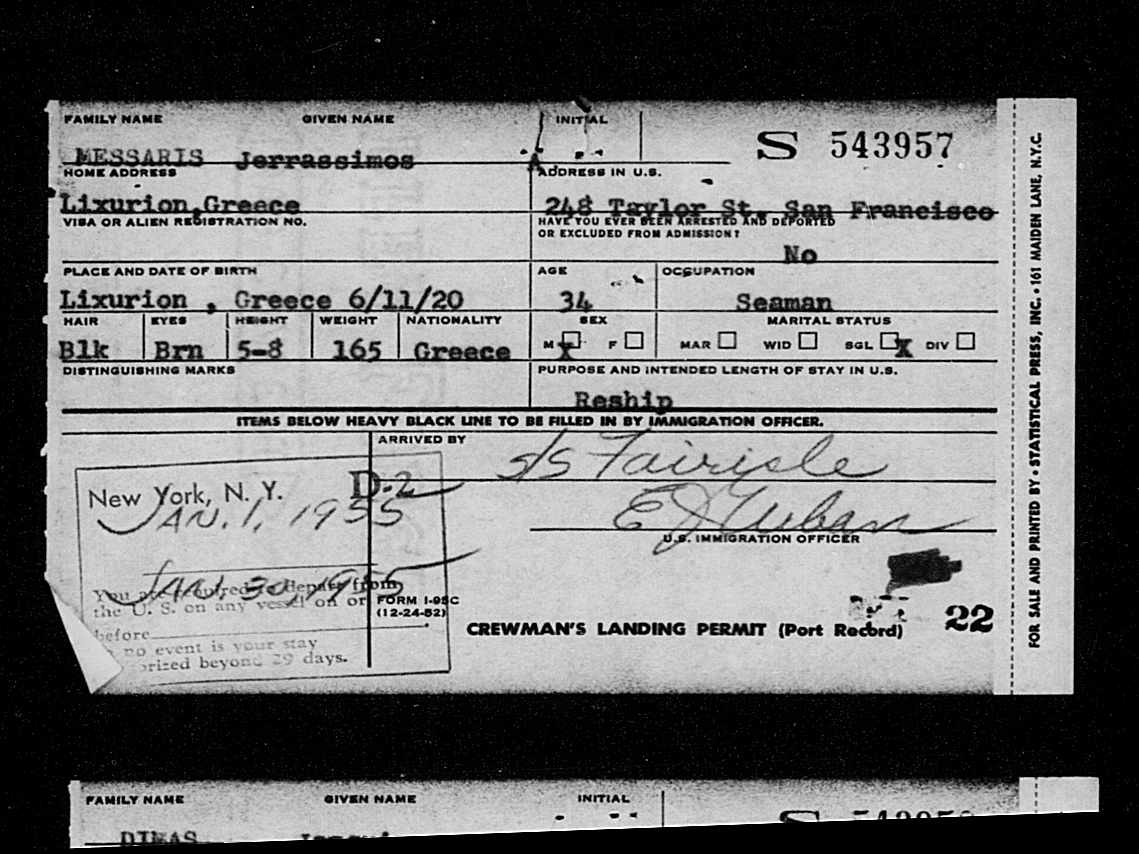 FAMILY NAME GIVEN NAME INITIAL
MESSARIS Jerrassimos A S 543957
HOME ADDRESS ADDRESS IN U.S.
Lixurion, Greece 248 Taylor St. San Francisco
VISA OR ALIEN REGISTRATION NO. HAVE YOU EVER BEEN ARRESTED AND DEPORTED
OR EXCLUDED FROM ADMISSION?
No
PLACE AND DATE OF BIRTH AGE OCCUPATION
Lixurion , Greece 6/11/20 34 Seaman
HAIR EYES HEIGHT WEIGHT NATIONALITY SEX MARITAL STATUS
Blk Brn 5-8 165 Greece M X F MAR WID SGL X DIV
DISTINGUISHING MARKS PURPOSE AND INTENDED LENGTH OF STAY IN U.S.
Reship
ITEMS BELOW HEAVY BLACK LINE TO BE FILLED IN BY IMMIGRATION OFFICER.
ARRIVED BY S/S Fairisle
New York, N. Y. D-2
JAN. 1, 1955
U.S. IMMIGRATION OFFICER
JAN. 30, 1955
You are required to depart from
the U. S. on any vessel on or
before
no event is your stay
beyond 29 days.
FORM I-95C
(12-24-52)
CREWMAN'S LANDING PERMIT (Port Record) 22
FOR SALE AND PRINTED BY • STATISTICAL PRESS, INC. • 161 MAIDEN LANE, N.Y.C.
FAMILY NAME GIVEN NAME INITIAL
DIMAS S